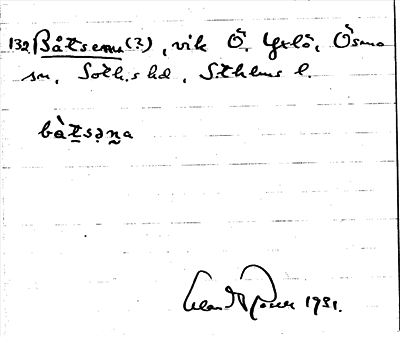 132 Båtsena (?), vik Ö. Yxlö, Ösmo
sn, Soth.s hd, Sthlms l.
bàtsəna
1931.